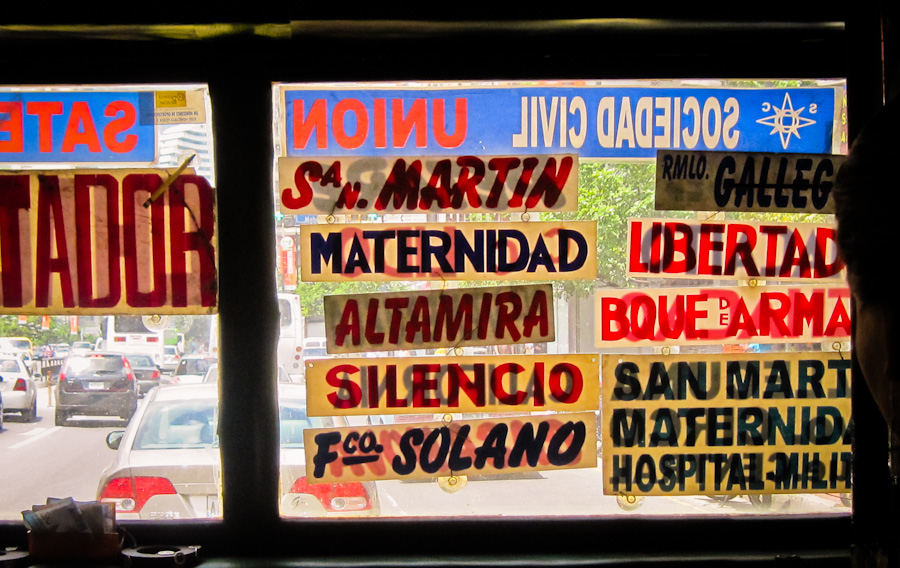 SOCIEDAD CIVIL UNION
SATE
TADOR
SAN. MARTIN
MATERNIDAD
ALTAMIRA
SILENCIO
Fco. SOLANO
RMLO. GALLEG
LIBERTAD
BQUE DE ARMA
SAN MART
MATERNIDA
HOSPITAL-MILIT